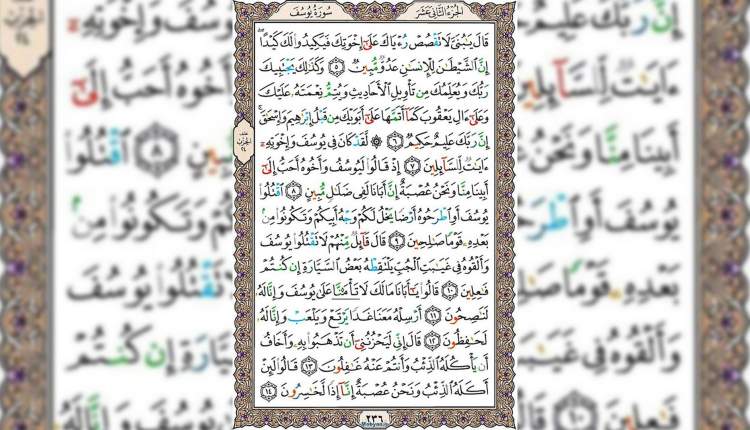 الجزء الثاني عشر
سورة يوسف
قَالَ يَٰبُنَىَّ لَا تَقۡصُصۡ رُءۡيَاكَ عَلَىٰٓ إِخۡوَتِكَ فَيَكِيدُواْ لَكَ كَيۡدًاۖ
إِنَّ ٱلشَّيۡطَٰنَ لِلۡإِنسَٰنِ عَدُوّٞ مُّبِينٞ ٥ وَكَذَٰلِكَ يَجۡتَبِيكَ
رَبُّكَ وَيُعَلِّمُكَ مِن تَأۡوِيلِ ٱلۡأَحَادِيثِ وَيُتِمُّ نِعۡمَتَهُۥ عَلَيۡكَ
وَعَلَىٰٓ ءَالِ يَعۡقُوبَ كَمَآ أَتَمَّهَا عَلَىٰٓ أَبَوَيۡكَ مِن قَبۡلُ إِبۡرَٰهِيمَ وَإِسۡحَٰقَۚ
إِنَّ رَبَّكَ عَلِيمٌ حَكِيمٞ ٦ ۞ لَّقَدۡ كَانَ فِى يُوسُفَ وَإِخۡوَتِهِۦٓ
ءَايَٰتٞ لِّلسَّآئِلِينَ ٧ إِذۡ قَالُواْ لَيُوسُفُ وَأَخُوهُ أَحَبُّ إِلَىٰٓ
أَبِينَا مِنَّا وَنَحۡنُ عُصۡبَةٌ إِنَّ أَبَانَا لَفِى ضَلَٰلٖ مُّبِينٍ ٨ ٱقۡتُلُواْ
يُوسُفَ أَوِ ٱطۡرَحُوهُ أَرۡضٗا يَخۡلُ لَكُمۡ وَجۡهُ أَبِيكُمۡ وَتَكُونُواْ مِنۢ
بَعۡدِهِۦ قَوۡمٗا صَٰلِحِينَ ٩ قَالَ قَآئِلٞ مِّنۡهُمۡ لَا تَقۡتُلُواْ يُوسُفَ
وَأَلۡقُوهُ فِى غَيَٰبَتِ ٱلۡجُبِّ يَلۡتَقِطۡهُ بَعۡضُ ٱلسَّيَّارَةِ إِن كُنتُمۡ
فَٰعِلِينَ ١٠ قَالُواْ يَٰٓأَبَانَا مَالَكَ لَا تَأۡمَ۬نَّا عَلَىٰ يُوسُفَ وَإِنَّا لَهُۥ
لَنَٰصِحُونَ ١١ أَرۡسِلۡهُ مَعَنَا غَدٗا يَرۡتَعۡ وَيَلۡعَبۡ وَإِنَّا لَهُۥ
لَحَٰفِظُونَ ١٢ قَالَ إِنِّى لَيَحۡزُنُنِىٓ أَن تَذۡهَبُواْ بِهِۦ وَأَخَافُ
أَن يَأۡكُلَهُ ٱلذِّئۡبُ وَأَنتُمۡ عَنۡهُ غَٰفِلُونَ ١٣ قَالُواْ لَئِنۡ
أَكَلَهُ ٱلذِّئۡبُ وَنَحۡنُ عُصۡبَةٌ إِنَّآ إِذٗا لَّخَٰسِرُونَ ١٤
٢٣٦